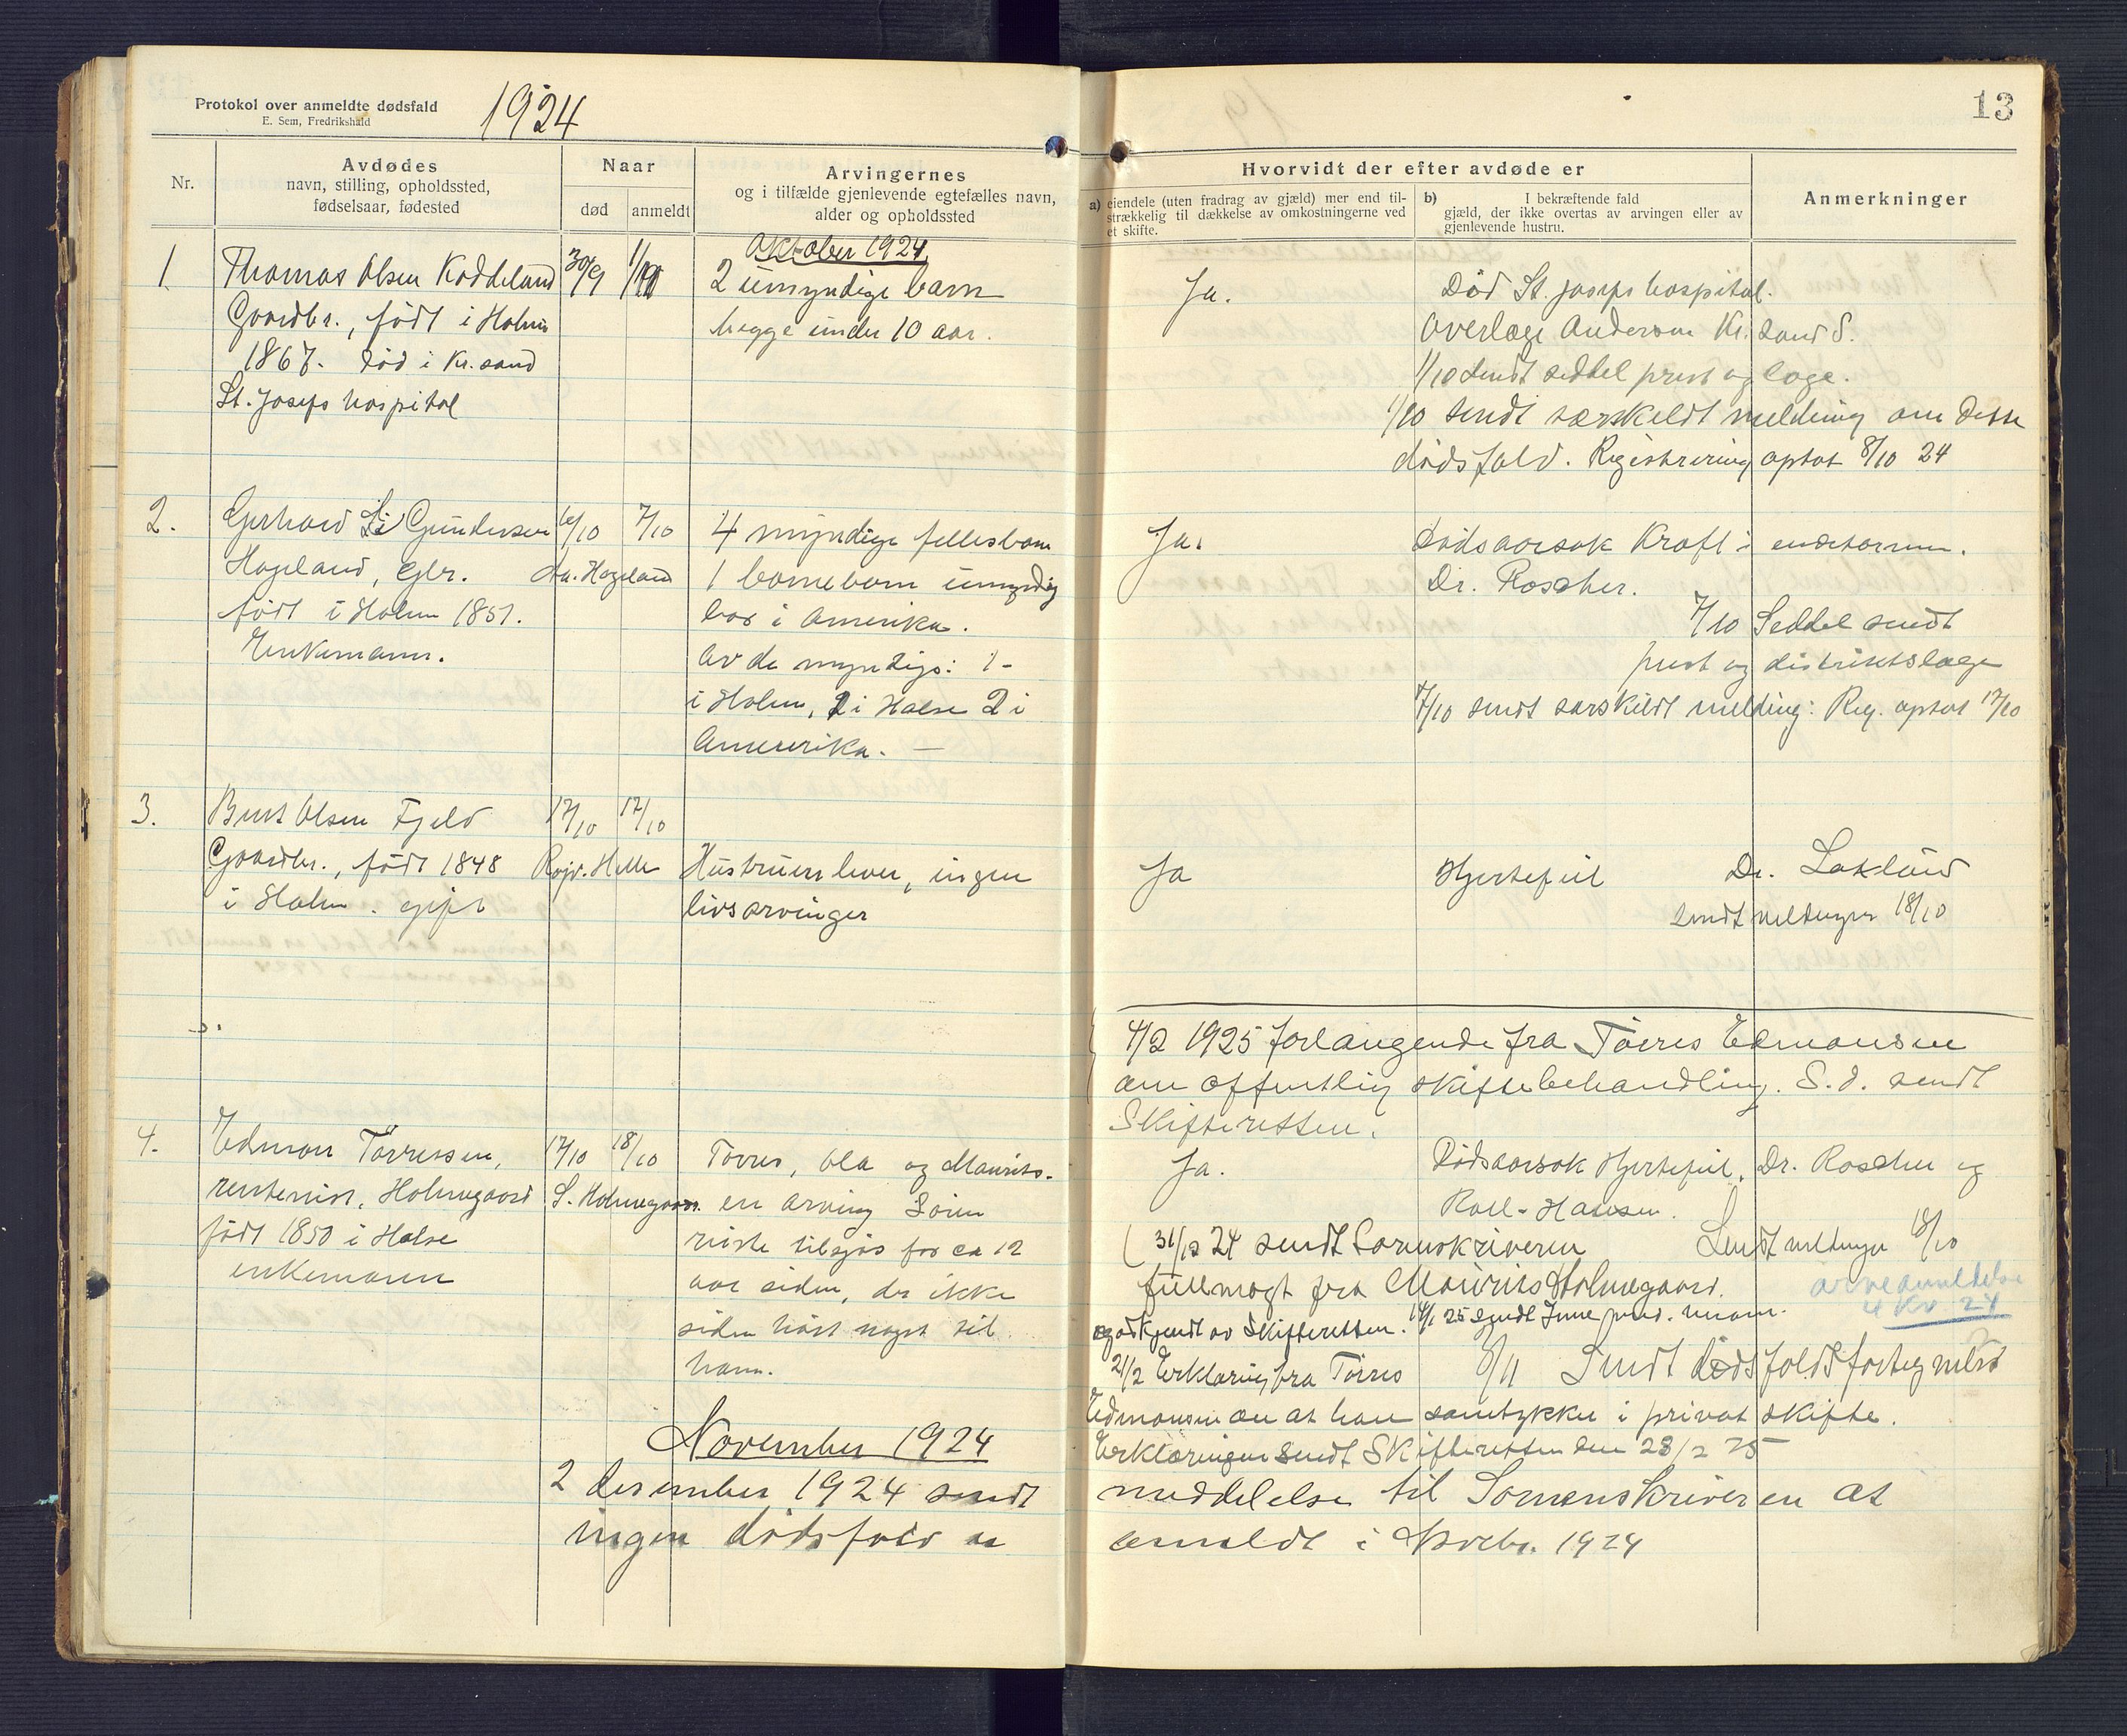 Protokol over anmeldte dødsfald
E. Sem, Fredrikshald
1924
Nr.
Avdødes
navn, stilling, opholdssted,
fødselsaar, fødested
Naar
død
anmeldt
Arvingernes
og i tilfælde gjenlevende egtefælles navn,
alder og opholdssted
Oktober 1924
1
Thomas Olsen Koddeland
Gaardbr., født i Holum
1867. Død i Kr.sand
St. Josefs hospital
30/9
2 umyndige barn
begge under 10 aar.
2.
Gerhard Gundersen
Høgeland, gbr.
født i Holum 1851.
Enkemann.
6/10
7/10
Aa. Høgeland
4 myndige fellesbarn
1 barnebarn umyndig
bor i Amerika.
Av de myndige: 1-
i Holum, i Halse 2 i
Amererika. —
3.
Bent Olsen Fjeld
Gaardbr., født 1848
i Holum. gift
17/10
17/10
Hustruen lever, ingen
livsarvinger
4.
Edmon Tørresen,
rentenist, Holmegaard
født 1850 i Halse
enkemann
17/10
18/10
S. Holmegaard.
Tørres, Ola og Maurits.
en arving Søren
reiste tilsjøs for ca 12
aar siden, der ikke
siden hørt noget til
ham.
November 1924
2 desember 1924 sendt
ingen dødsfald er
13
Hvorvidt der efter avdøde er
a) eiendele (uten fradrag av gjæld) mer end til-
strækkelig til dækkelse av omkostningerne ved
et skifte.
b) I bekræftende fald
gjæld, der ikke overtas av arvingen eller av
gjenlevende hustru.
Anmerkninger
Ja.
Død St. Josefs hospital.
Overlæge Anderson Kr.sand S.
1/10 sendt seddel prest og læge.
1/10 sendt særskildt melding om dette
dødsfald. Registrering optat 8/10 24
Ja.
Dødsaarsak Kræft i endetarmen.
Dr. Roscher.
7/10 Seddel sendt
prest og distriktslæge
7/10 sendt særskildt melding: Reg. optat 17/10
Ja
Hjertefeil
Dr. Laxlund
sendt meldinger 18/10
4/2 1925 forlangende fra Tørres Edmonsen
om offentlig skiftebehandling. S.d. sendt
Skifteretten.
Ja.
Dødsaarsak Hjertefeil. Dr. Roscher og
Roll-Hansen.
31/12 24 sendt Sorenskriveren
Sendt meldinger 18/10
fullmagt fra Maurits Holmegaard.
arveanmeldelse
4 Kv. 24
godkjendt av Skifteretten. 14/1 25 sendt
21/2 Erklæring fra Tørres
8/11 Sendt dødsfaldsfortegnelse
Edmonsen om at han samtykker i privat skifte.
Erklæringen sendt Skifteretten den 23/2 25
meddelelse til Sorenskriveren at
anmeldt i Novbr. 1924